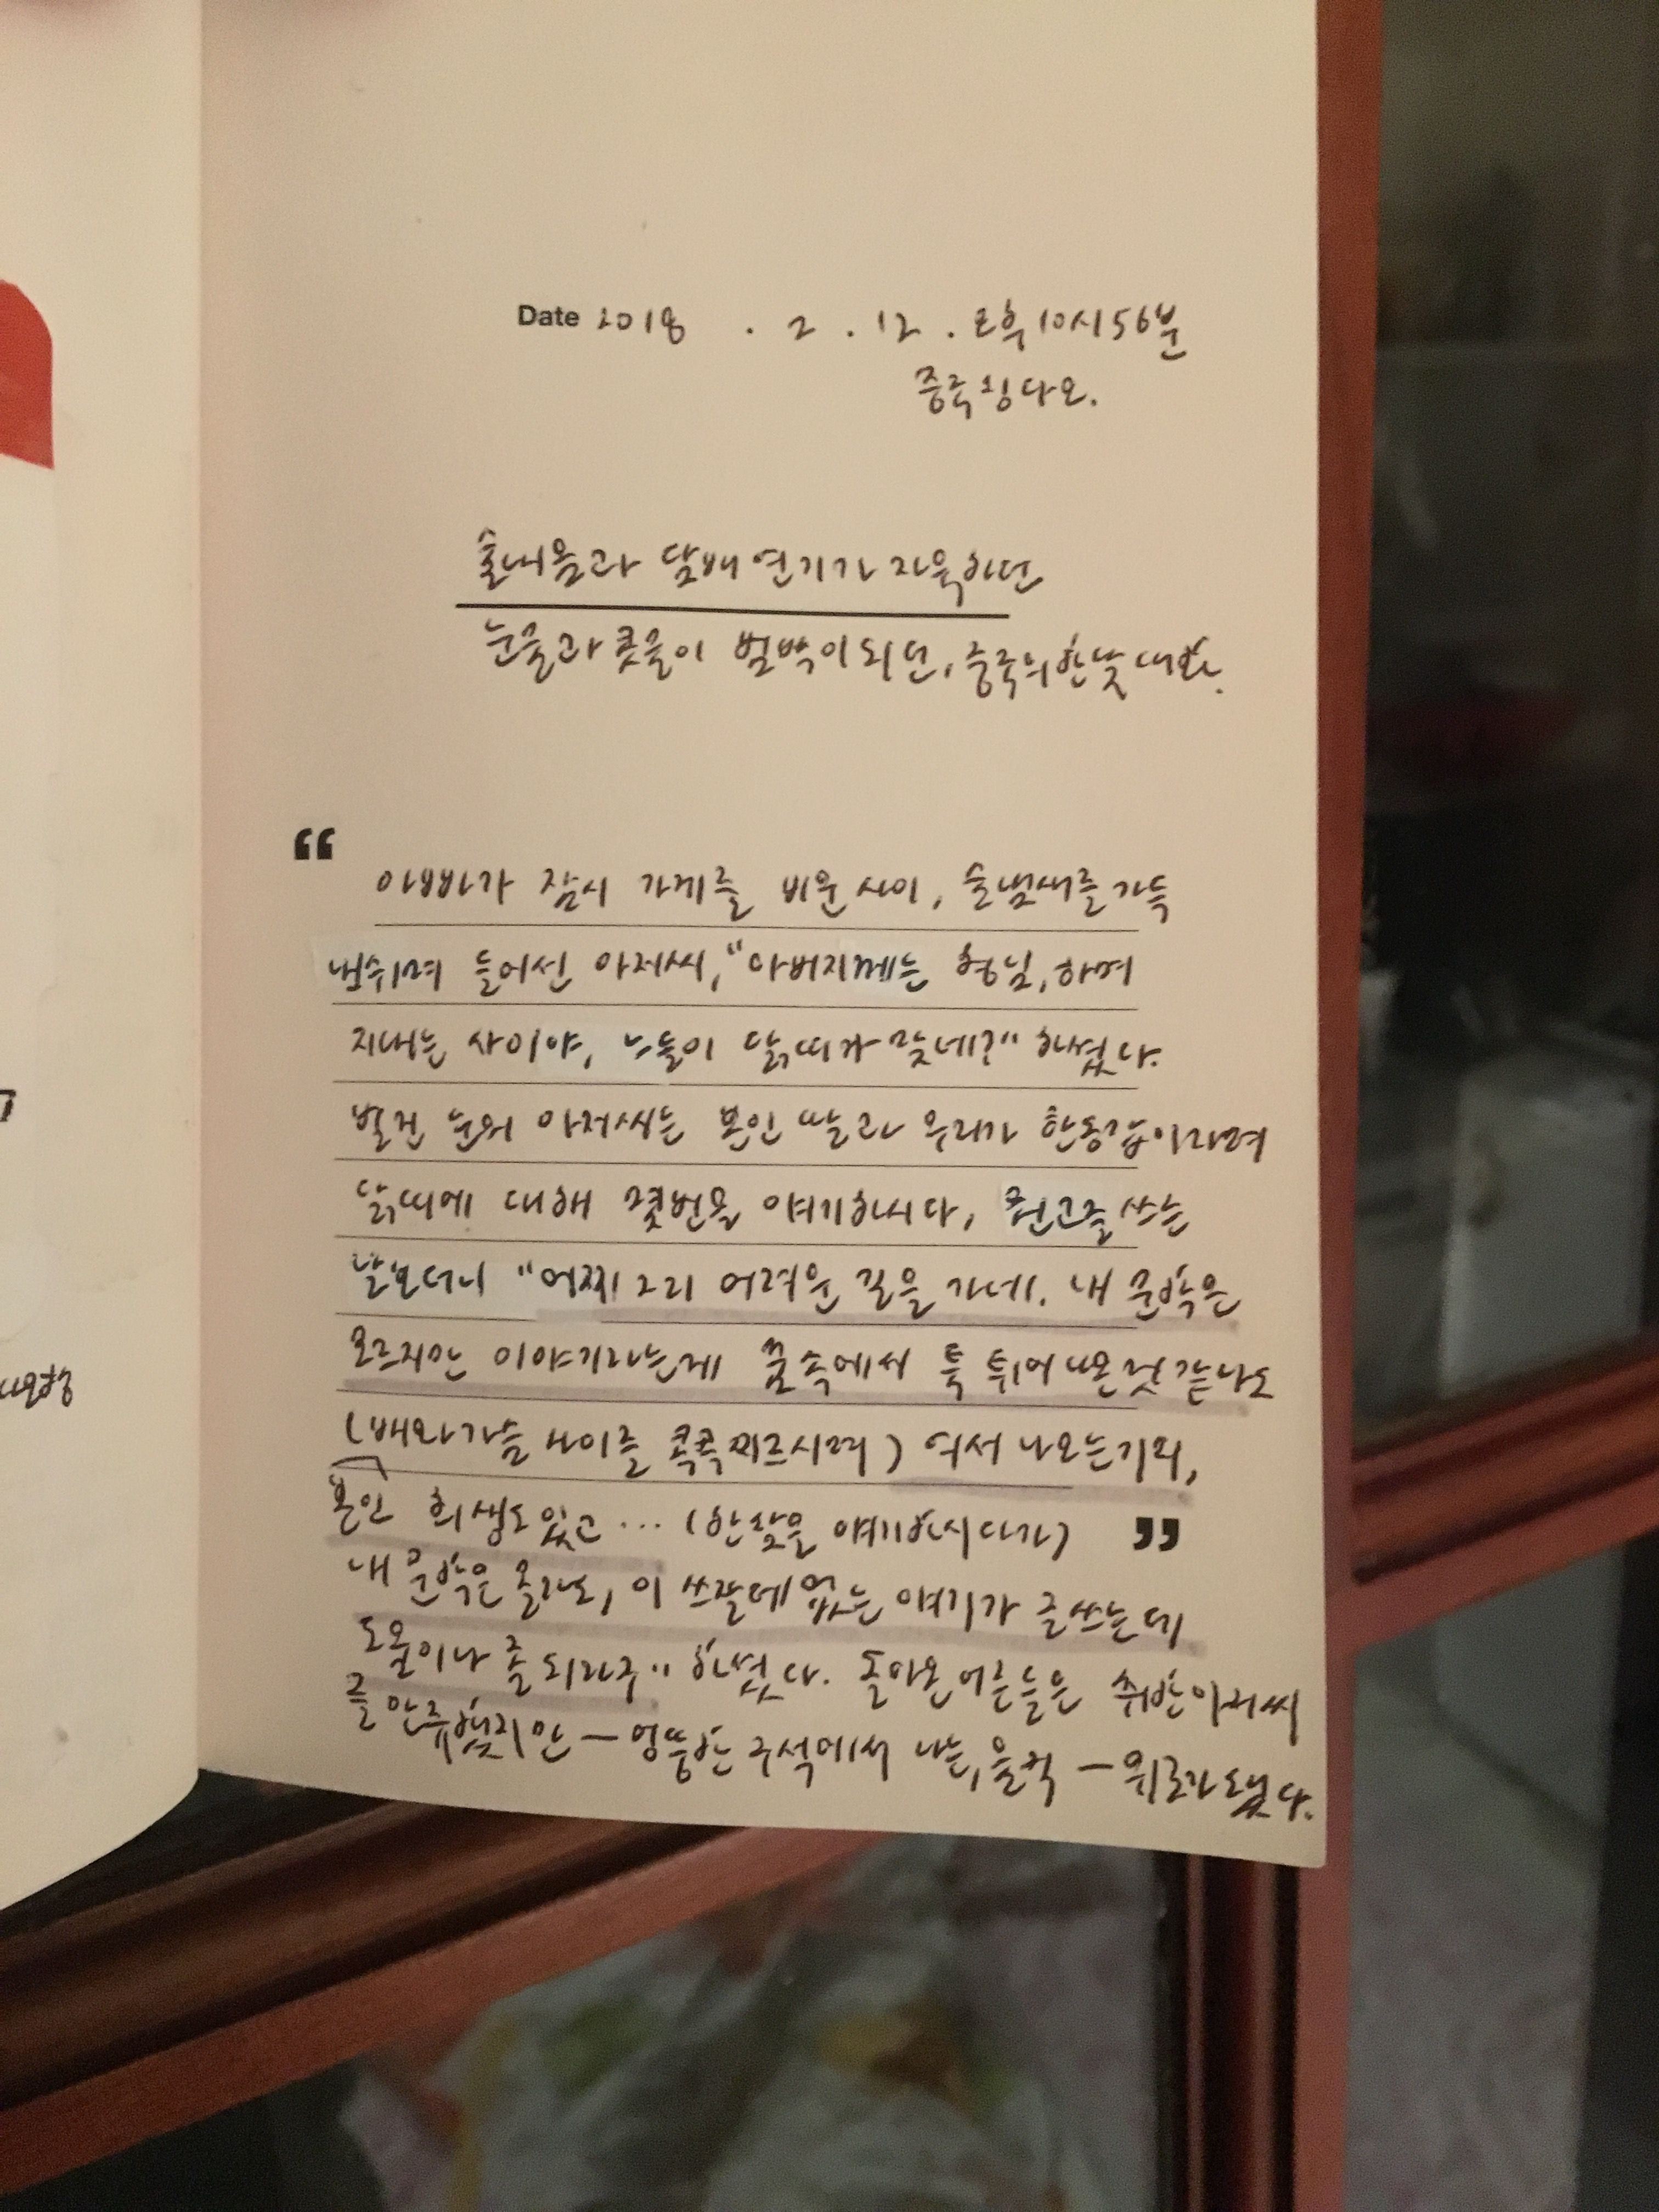 Date 2018 . 2 . 12 . 오후 10시 56분
중국 칭다오.
술내음과 담배 연기가 자욱하던
눈물과 콧물이 범벅이 되던, 중국의 한낮 대화.
“
아빠가 잠시 가게를 비운 사이, 술냄새를 가득
내쉬며 들어선 아저씨, "아버지께는 형님, 하며
지내는 사이야, 느들이 닭띠가 맞네?" 하셨다.
벌건 눈의 아저씨는 본인 딸과 우리가 한동갑이라며
닭띠에 대해 몇번을 얘기하시다, 원고를 쓰는
날 보더니 "어찌 그리 어려운 길을 가네. 내 문학은
모르지만 이야기라는게 꿈 속에서 툭 튀어나온 것 같나도
(배와 가슴 사이를 콕콕 찌르시며) 여서 나오는기라,
본인 희생도 있고 ... (한참을 얘기하시다가) ”
내 문학은 몰라도, 이 쓰잘데 없는 얘기가 글쓰는데
도움이나 좀 되라구" 하셨다. 돌아온 어른들은 취한 아저씨
를 만류했지만 — 엉뚱한 구석에서 나는, 울컥 — 위로가 됐다.